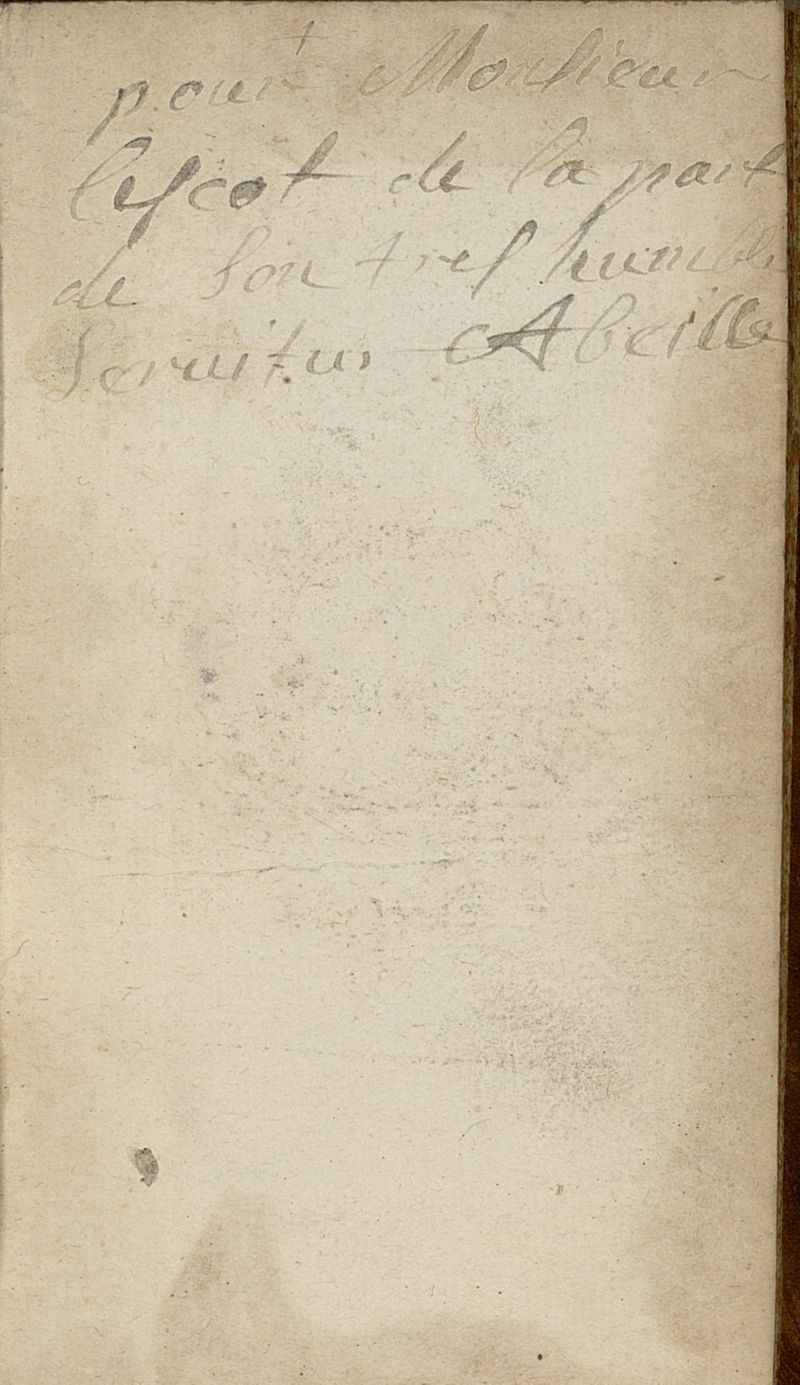 pour Monsieur
lescot de la part
de son tres humble
seruiteur Abeille